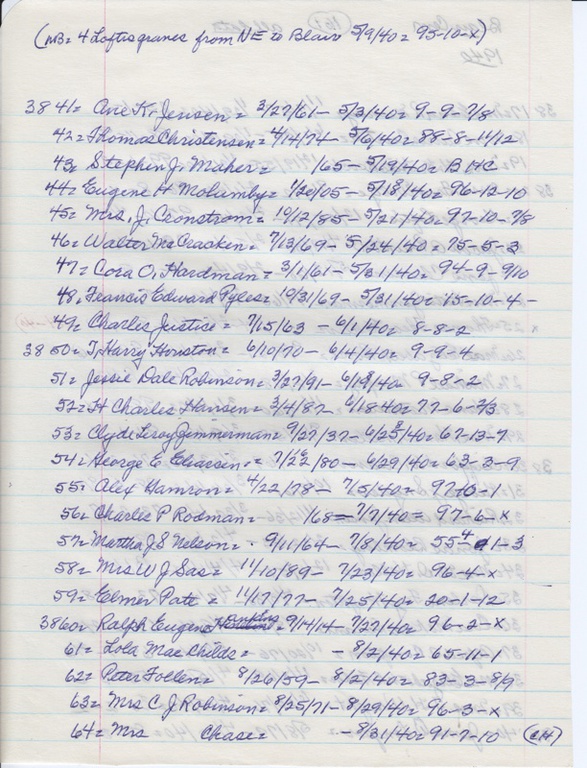 (NB= 4 Loftis graves from NE to Blair 5/9/40= 95-10-x)
38 41= Ove K. Jensen = 3/27/61 - 5/3/40= 9-9-7/8
42= Thomas Christensen = 4/14/74 - 5/6/40= 88-8-11/12
43= Stephen J. Maher = /65 - 5/19/40= B HC
44= Eugene H Molumby= 1/20/05 - 5/18/40= 96-12-10
45= Mrs. J. Cronstrom= 10/12/85 - 5/21/40= 97-10-7/8
46= Walter McCracken= 7/13/69 - 5/24/40= 75-5-3
47= Cora O. Hardman= 3/1/61 - 5/31/40= 94-9-9/10
48= Francis Edward Pyles= 10/31/69 - 5/31/40= 15-10-4-
49= Charles Justice= 7/15/63 - 6/1/40= 8-8-2
38 50= T. Harry Houston= 6/10/70 - 6/4/40= 9-9-4
51= Jessie Dale Robinson= 3/27/91 - 6/40= 9-8-2
52= H Charles Hansen= 3/4/87 - 6/18/40= 77-6-2/3
53= Clyde Leroy Zimmerman= 9/27/37 - 6/40= 67-13-7
54= George E. = 7/80 - 6/29/40= 63-3-9
55= Alex Hamron= 4/22/78 - 7/5/40= 97-10-1
56= Charlie P Rodman= /68 - 7/7/40= 97-6-x
57= Martha J S Nelson= 9/11/64 - 7/8/40= 55 1-3
58= Mrs W J Sas= 11/10/89 - 7/23/40= 96-4-x
59= Elmer Pate= 11/17/77 - 7/25/40= 20-1-12
3860= Ralph Eugene = 9/14/14 - 7/27/40= 96-2-x
61= Lola Mae Childs= - 8/2/40= 65-11-1
62= Peter Follen= 8/26/59 - 8/2/40= 83-3-8/9
63= Mrs C J Robinson= 8/25/71 - 8/29/40= 96-3-x
64= Mrs Chase= - 8/31/40= 91-7-10 (CH)